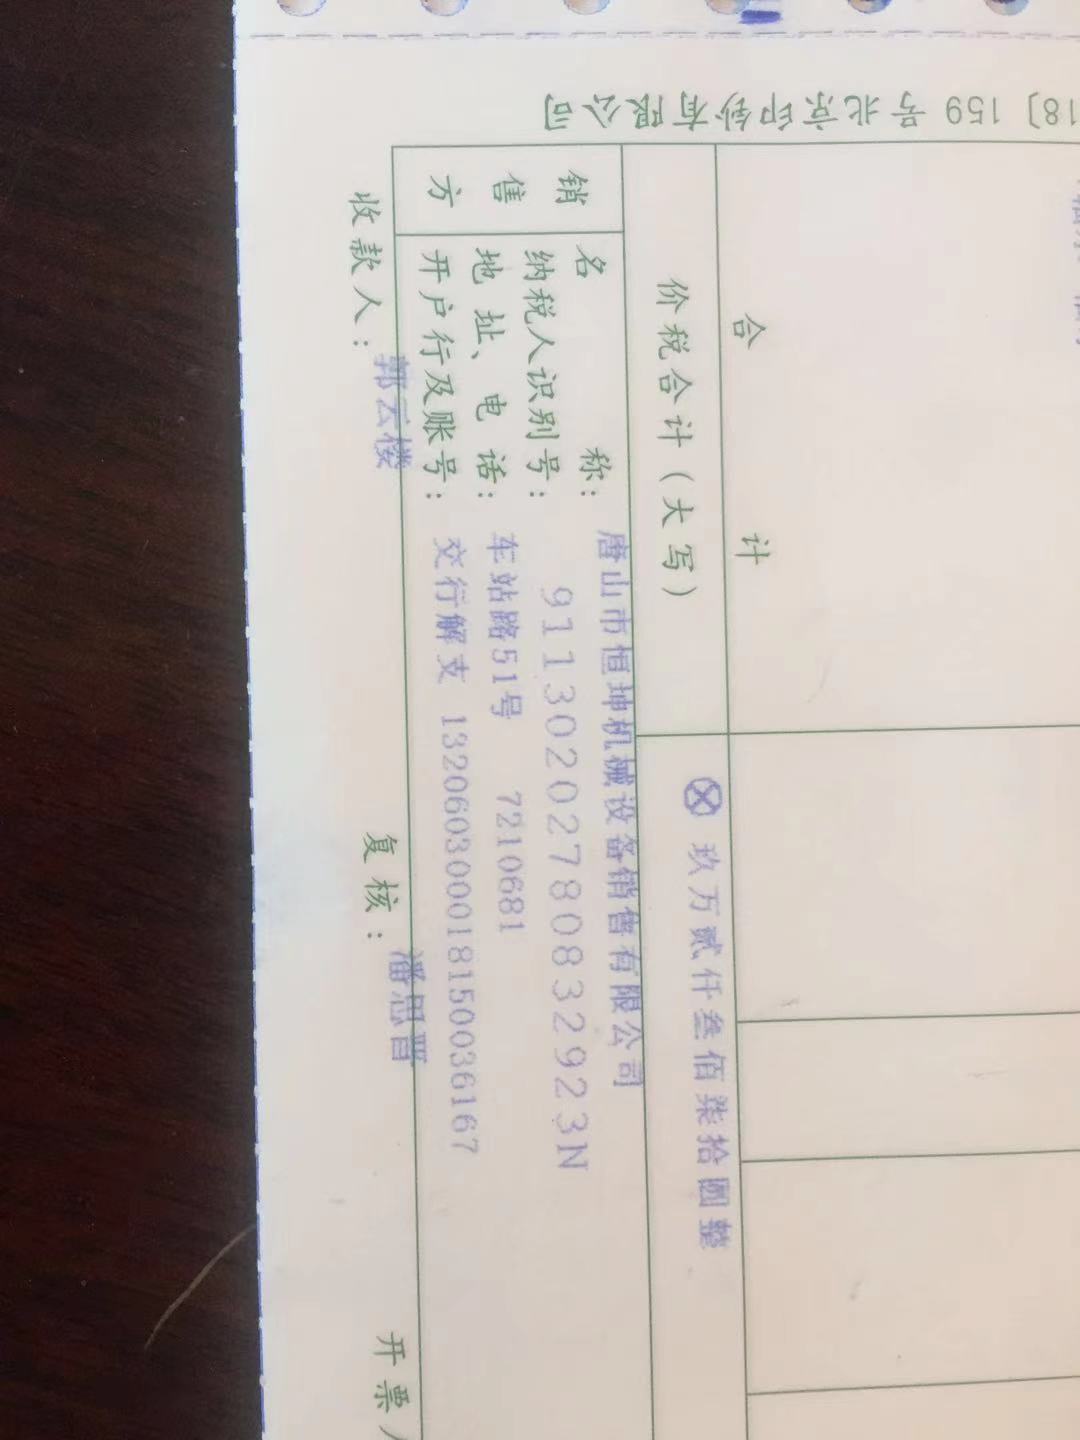 18〕159号北京印钞有限公司
合 计
价税合计(大写) ⊗ 玖万贰仟叁佰柒拾圆整
销售方
名 称: 唐山市恒坤机械设备销售有限公司
纳税人识别号: 91130202780832923N
地 址、电 话: 车站路51号 7210681
开户行及账号: 交行解支 132060300018150036167
收款人: 郭云楼 复核: 潘思晋 开票人